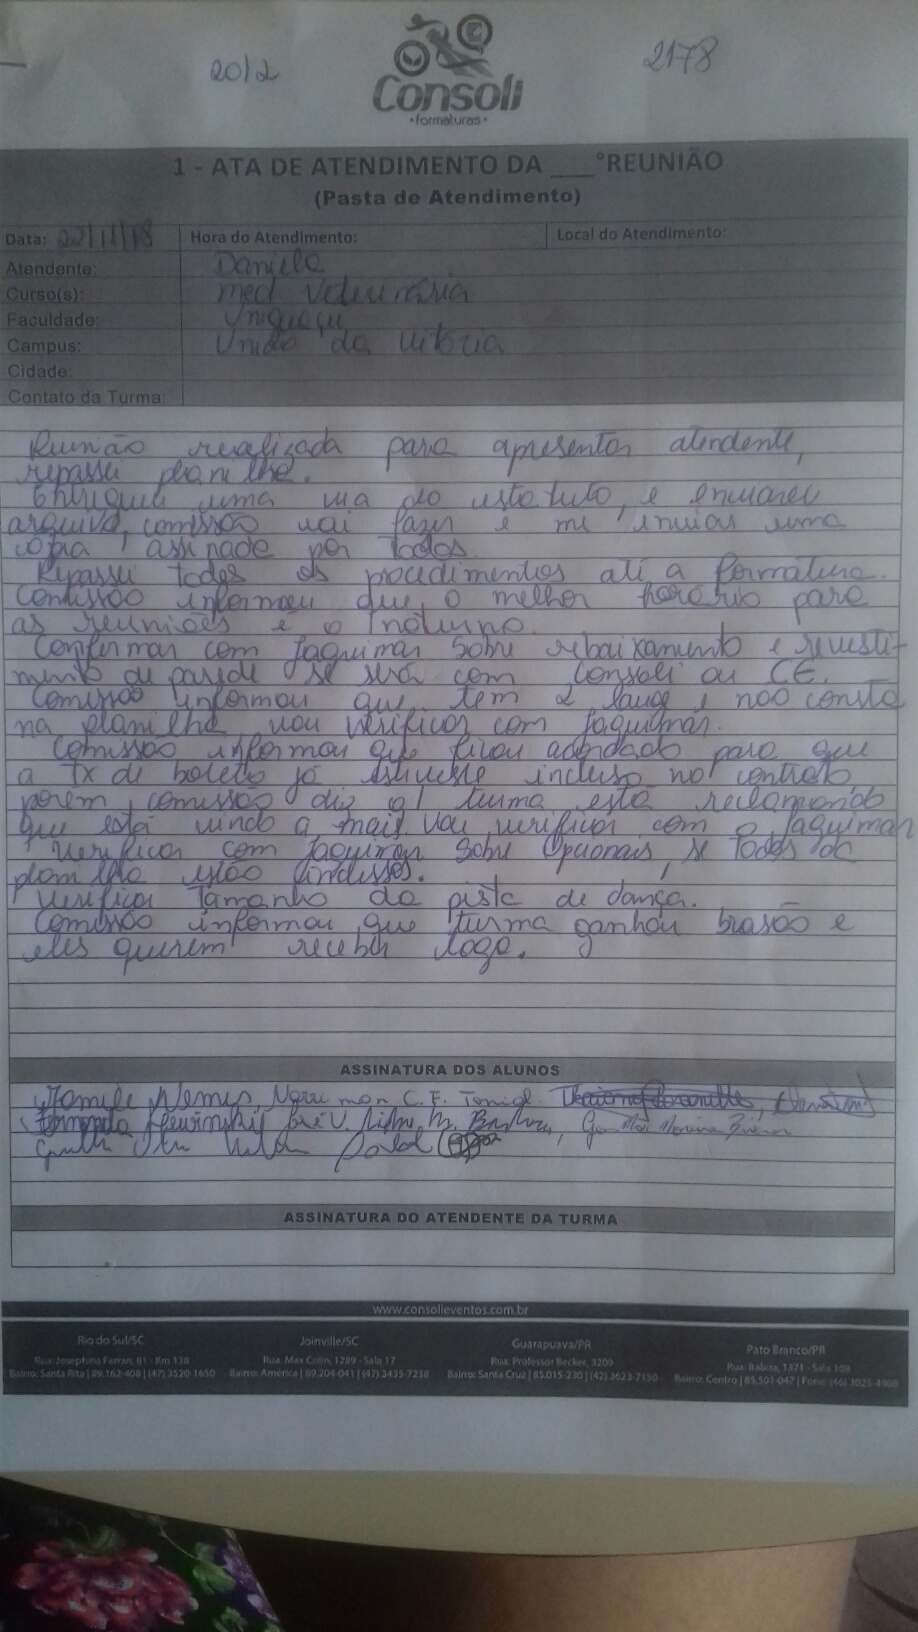 20/2
2178
Consoli
•formaturas•
1 - ATA DE ATENDIMENTO DA ____°REUNIÃO
(Pasta de Atendimento)
Data: 22/11/18 Hora do Atendimento: Local do Atendimento:
Atendente: Daniele
Curso(s): med Veterinária
Faculdade: Uniguaçu
Campus: União da Vitoria
Cidade:
Contato da Turma:
Reunião realizada para apresentar atendente,
repassei planilha.
Entreguei uma via do estatuto, e enviarei
arquivo, comissão vai fazer e me enviar uma
cópia assinada por todos.
Repassei todos os procedimentos até a formatura.
Comissão informou que o melhor horário para
as reuniões é o noturno.
Confirmar com Jaquimar sobre rebaixamento e revesti-
mento de parede se será com Consoli ou CE.
Comissão informou que tem 2 lounge e não consta
na planilha, vou verificar com Jaquimar.
Comissão informou que ficou acordado para que
a tx de boleto já estivesse incluso no contrato,
porém comissão diz q' turma está reclamando
que está vindo a mais vou verificar com o Jaquimar
Verificar com Jaquimar sobre opcionais, se todos da
planilha estão
Verificar tamanho da pista de dança.
Comissão informou que turma ganhou brasão e
eles querem receber logo.
ASSINATURA DOS ALUNOS
C.F.
Fernanda
ASSINATURA DO ATENDENTE DA TURMA
www.consolieventos.com.br
Rio do Sul/SC
Rua: Josephina Ferrari, 81 - Km 138
Bairro: Santa Rita | 89.162-408 | (47) 3520-1650
Joinville/SC
Rua. Max Colin, 1289 - Sala 17
Bairro: América | 89.204-041 | (47) 3435-7238
Guarapuava/PR
Rua. Professor Becker, 3209
Bairro: Santa Cruz | 85.015-230 | (42) 3623-7150
Pato Branco/PR
Rua: Itabira, 1371 - Sala 108
Bairro: Centro | 85.501-047 | Fone: (46) 3025-4900